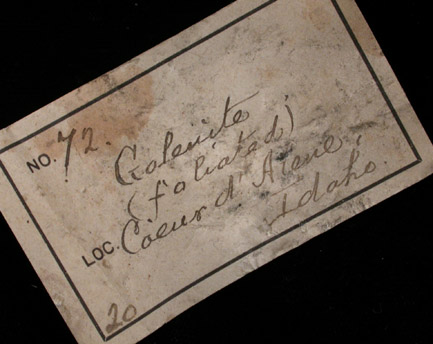 NO. 72.
Galenite
(foliated)
LOC. Coeur d'Alene,
Idaho.
20